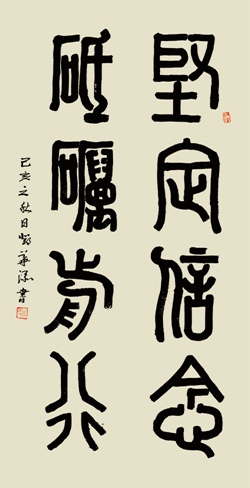 堅定信念
砥礪前行
己亥之秋日
書